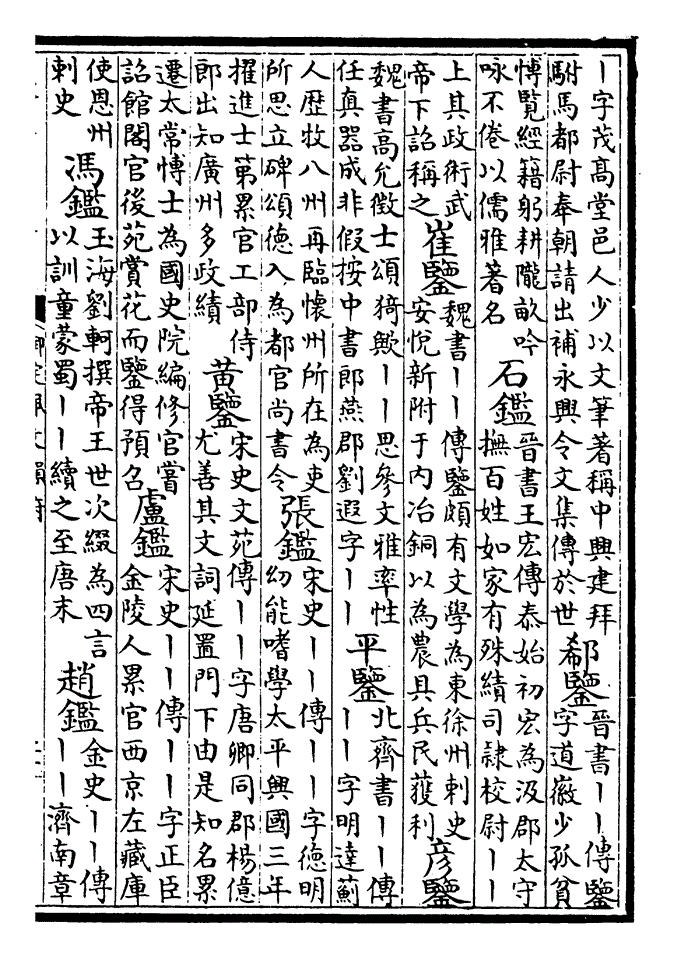 丨字茂高堂邑人少以文筆著稱中興建拜
駙馬都尉奉朝請出補永興令文集傳於世
郗鑒
晉書丨丨傳鑒
字道徽少孤貧
博覽經籍躬耕隴畝吟
咏不倦以儒雅著名
石鑑
晉書王宏傳泰始初宏為汲郡太守
撫百姓如家有殊績司隷校尉丨丨
上其政術武
帝下詔稱之
崔鑒
魏書丨丨傳鑒頗有文學為東徐州刺史
安悅新附于內冶銅以為農具兵民獲利
彦鑒
魏書高允徵士頌猗歟丨丨思參文雅率性
任真器成非假按中書郎燕郡劉遐字丨丨
平鑒
北齊書丨丨傳
丨丨字明達薊
人歷牧八州再臨懷州所在為吏
所思立碑頌德入為都官尚書令
張鑑
宋史丨丨傳丨丨字德明
幼能嗜學太平興國三年
擢進士第累官工部侍
郎出知廣州多政績
黃鑒
宋史文苑傳丨丨字唐卿同郡楊億
尤善其文詞延置門下由是知名累
遷太常博士為國史院編修官嘗
詔館閣官後苑賞花而鑒得預召
盧鑑
宋史丨丨傳丨丨字正臣
金陵人累官西京左藏庫
使恩州
刺史
馮鑑
玉海劉軻撰帝王世次綴為四言
以訓童蒙蜀丨丨續之至唐末
趙鑑
金史丨丨傳
丨丨濟南章